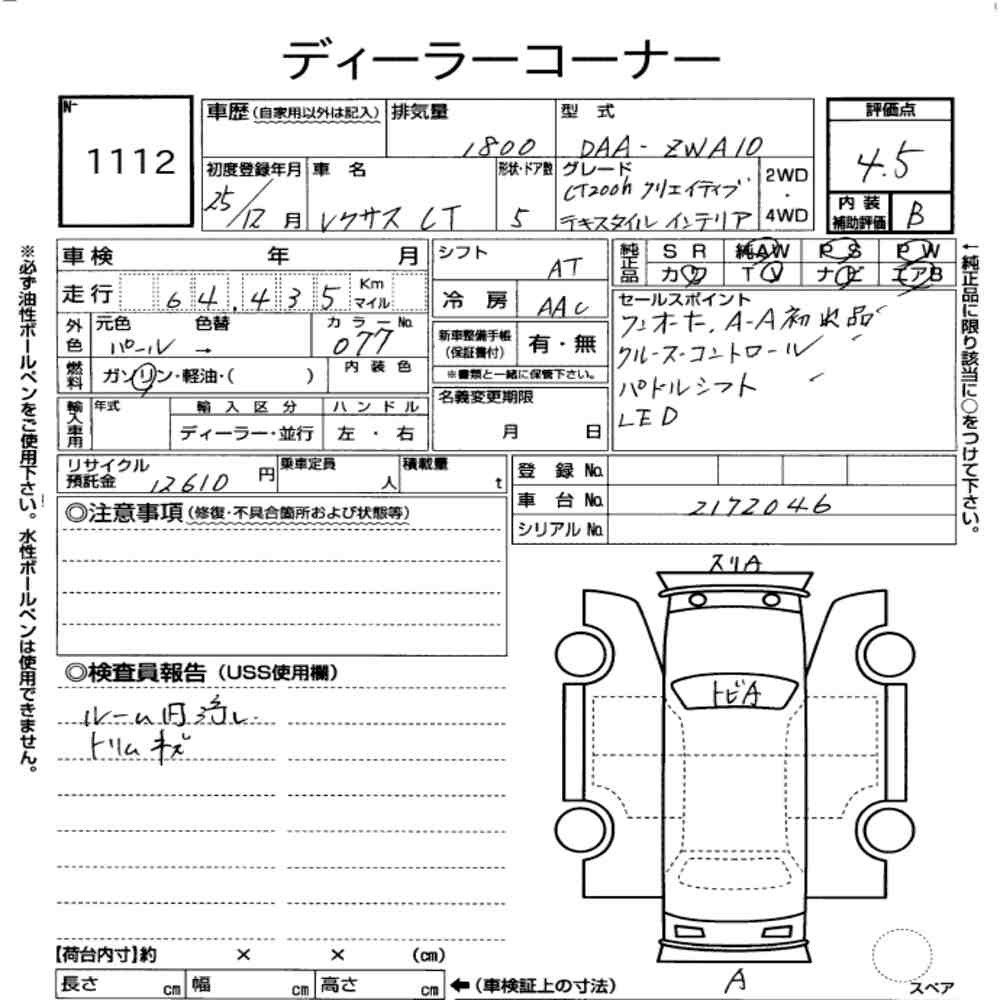 ディーラーコーナー
No.
1112
車歴(自家用以外は記入)
排気量
1800
型式
DAA-ZWA10
評価点
4.5
初度登録年月
25/12月
車名
レクサス CT
形状・ドア数
5
グレード
CT200h クリエイティブ
テキスタイル インテリア
2WD
・
4WD
内装
補助評価
B
※必ず油性ボールペンをご使用下さい。水性ボールペンは使用できません。
車検 年 月
走行 64,435 Km マイル
外色
元色 色替
パール →
カラーNo.
077
燃料
ガソリン・軽油・( )
内装色
輸入車用
年式
輸入区分
ディーラー・並行
ハンドル
左・右
シフト
AT
冷房
AAC
新車整備手帳
(保証書付)
有・無
※書類と一緒に保管下さい。
名義変更期限
月 日
純正品
SR 純AW PS PW
カワ TV ナビ エアB
セールスポイント
A-A初出品
クルーズ・コントロール
パドルシフト
LED
←純正品に限り該当に○をつけて下さい。
リサイクル
預託金 12610円
乗車定員
人
積載量
t
登録No.
車台No. 2172046
シリアルNo.
◎注意事項(修復・不具合箇所および状態等)
◎検査員報告(USS使用欄)
ルーム内汚れ
トリムキズ
スリA
トビA
A
スペア
【荷台内寸】約 × × (cm)
長さ cm 幅 cm 高さ cm
←(車検証上の寸法)